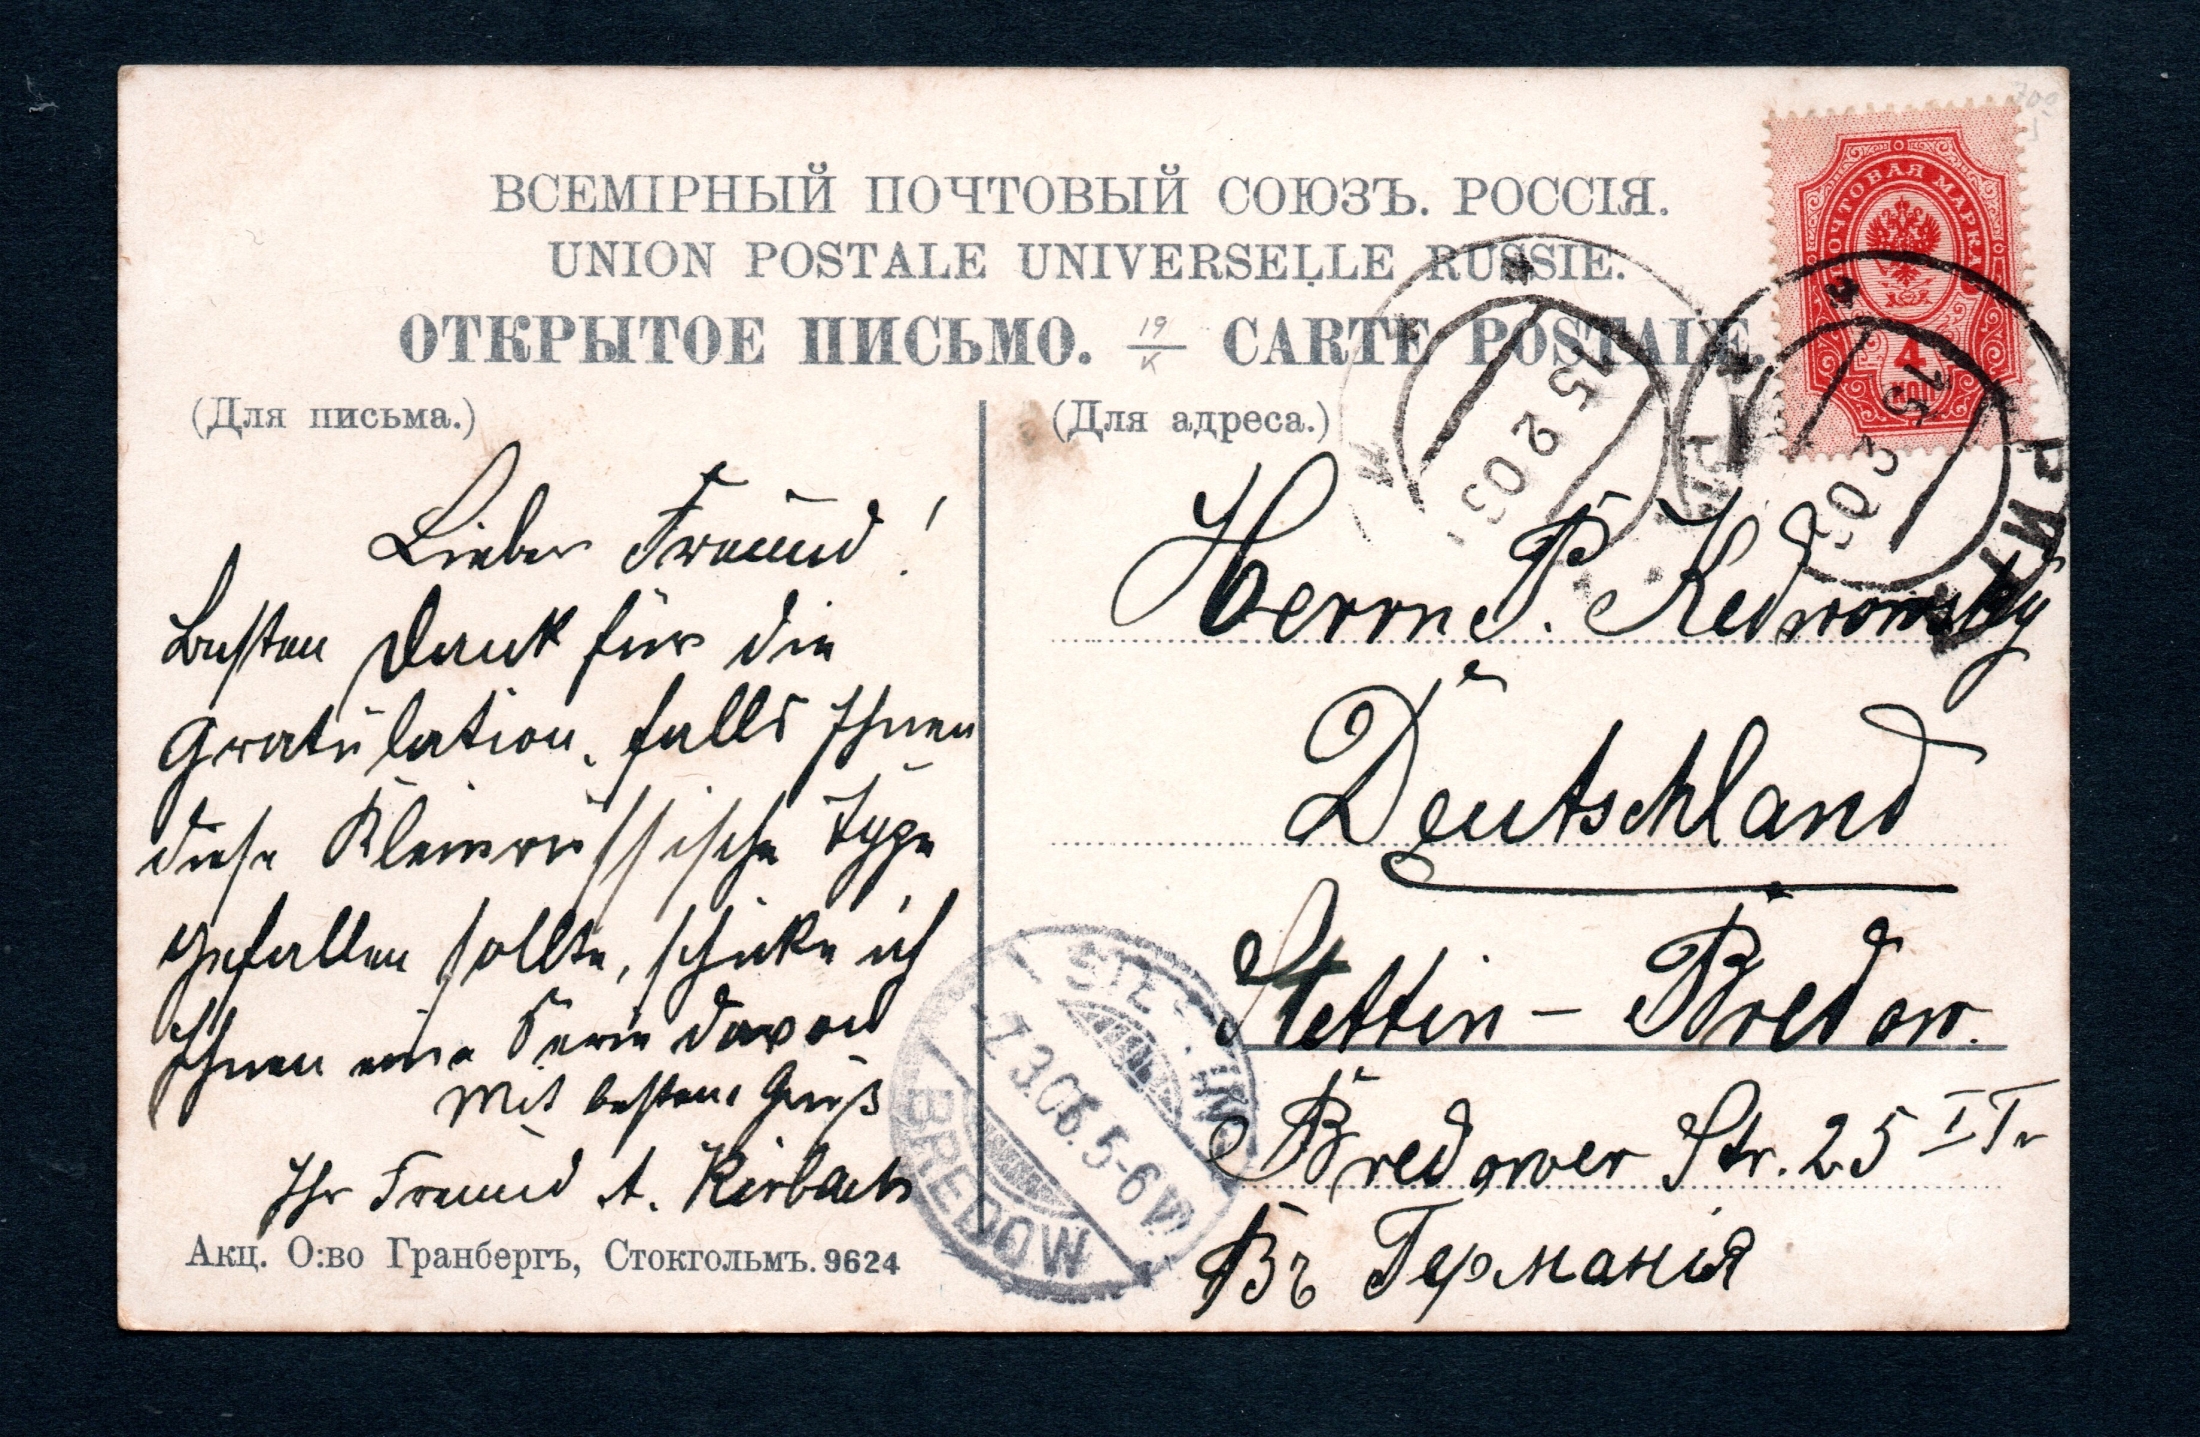 ВСЕМІРНЫЙ ПОЧТОВЫЙ СОЮЗЪ. РОССІЯ.
UNION POSTALE UNIVERSELLE RUSSIE.
ОТКРЫТОЕ ПИСЬМО. 19/К CARTE POSTALE.
(Для письма.)
Lieber Freund!
Besten Dank für die
Gratulation, falls Ihnen
diese Kleinrussische Type
gefallen sollte, schicke ich
Ihnen eine Serie davon
Mit bestem Gruß
Ihr Freund A. Kirbach
Акц. О:во Гранбергъ, Стокгольмъ. 9624
(Для адреса.)
Herrn P. Kednromsky
Deutschland
Stettin – Bredow.
Bredower Str. 25 II r
Въ Германія
ПОЧТОВАЯ МАРКА
4
РИГА
15 2 05
РИГА
15 2 05
STETTIN
7.3.06. 5-6 N.
BREDOW